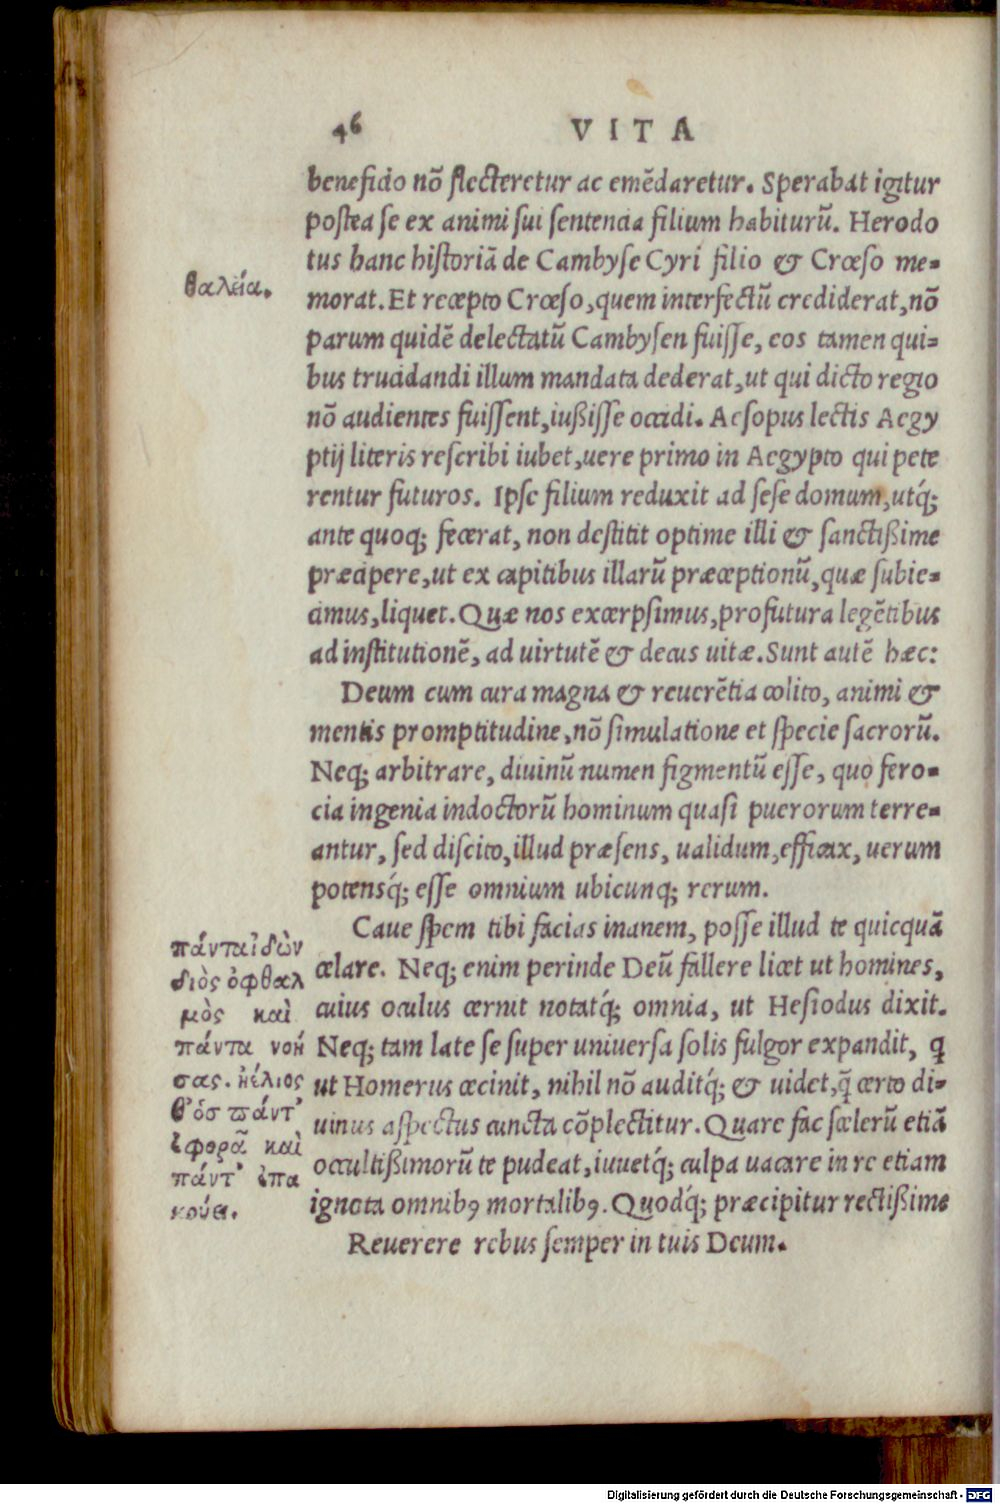 46 VITA
beneficio nō flecteretur ac emēdaretur. Sperabat igitur
postea se ex animi sui sentencia filium habiturū. Herodo
tus hanc historiā de Cambyse Cyri filio & Crœso me-
θαλεία.
morat. Et recepto Crœso, quem interfectū crediderat, nō
parum quidē delectatū Cambysen fuisse, eos tamen qui-
bus trucidandi illum mandata dederat, ut qui dicto regio
nō audientes fuissent, iußisse occidi. Aesopus lectis Aegy
ptij literis rescribi iubet, uere primo in Aegypto qui pete
rentur futuros. Ipse filium reduxit ad sese domum, utq́;
ante quoq; fecerat, non destitit optime illi & sanctißime
præcipere, ut ex capitibus illarū præceptionū, quæ subie-
cimus, liquet. Quæ nos excerpsimus, profutura legētibus
ad institutionē, ad uirtutē & decus uitæ. Sunt autē hæc:
Deum cum cura magna & reuerētia colito, animi &
mentis promptitudine, nō simulatione et specie sacrorū.
Neq; arbitrare, diuinū numen figmentū esse, quo fero-
cia ingenia indoctorū hominum quasi puerorum terre-
antur, sed discito, illud præsens, ualidum, efficax, uerum
potensq́; esse omnium ubicunq; rerum.
Caue spem tibi facias inanem, posse illud te quicquā
celare. Neq; enim perinde Deū fallere licet ut homines,
cuius oculus cernit notatq́; omnia, ut Hesiodus dixit.
Neq; tam late se super uniuersa solis fulgor expandit, q
ut Homerus cecinit, nihil nō auditq́; & uidet, q̄ certo di-
uinus aspectus cuncta cōplectitur. Quare fac scelerū etiā
occultißimorū te pudeat, iuuetq́; culpa uacare in re etiam
ignota omnibꝰ mortalibꝰ. Quodq́; præcipitur rectißime
Reuerere rebus semper in tuis Deum.
πάντα ἰδὼν
διὸς ὀφθαλ
μὸς καὶ
πάντα νοή
σας. ἠέλιος
θ' ὁσ πάντ'
ἐφορᾶ καὶ
πάντ' ἐπα
κούει.
Digitalisierung gefördert durch die Deutsche Forschungsgemeinschaft - DFG